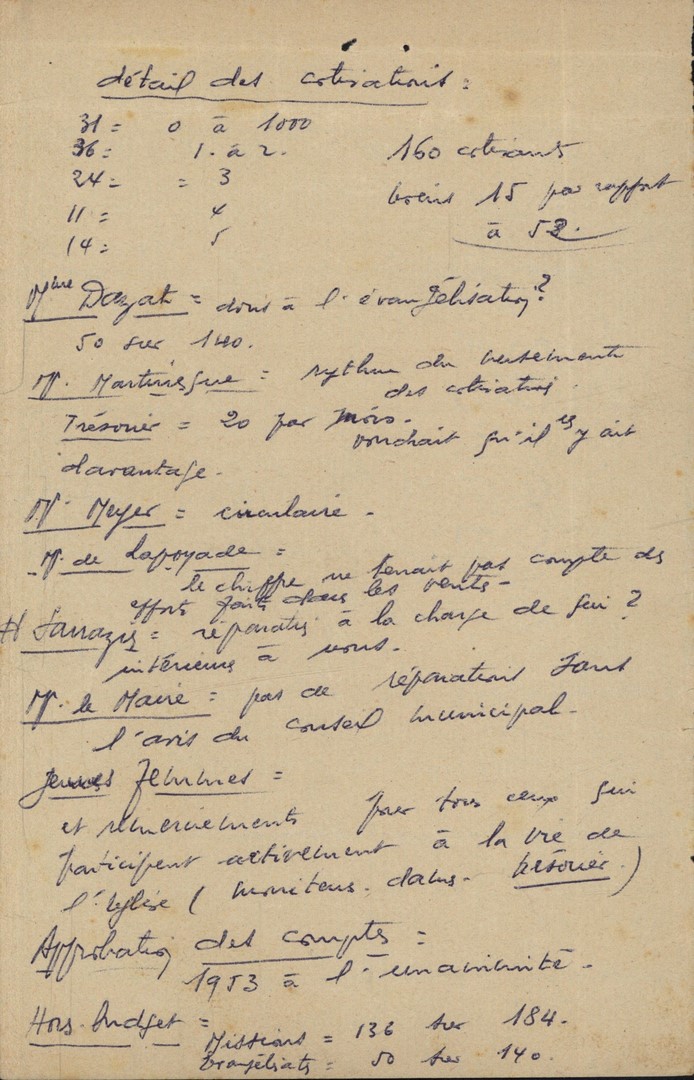 détail des cotisations :
31 = 0 à 1000
36 = 1 . à 2 .
24 = = 3
11 = 4
14 = 5
160 cotisants
moins 15 par rapport
à 52.
Mme Dazat = dons à l'évangélisation ?
50 sur 140.
M. Martinesque = rythme du versement
des cotisations.
Trésorier = 20 par mois.
voudrait qu'il y ait
davantage.
M. Meyer = circulaire .
M. de Lapoyade =
le chiffre ne tenait pas compte des
efforts faits dans les ventes -
Sarrazin = réparations à la charge de qui ?
intérieures à nous.
M. le Maire = pas de réparations sans
l'avis du conseil municipal -
Jeunes Femmes =
et remerciements pour tous ceux qui
participent activement à la vie de
l'Eglise ( moniteurs. dames. trésorier. )
Approbation des comptes =
1953 à l'unanimité -
Hors-Budget =
Missions = 136 sur 184.
Evangélisat = 50 sur 140.